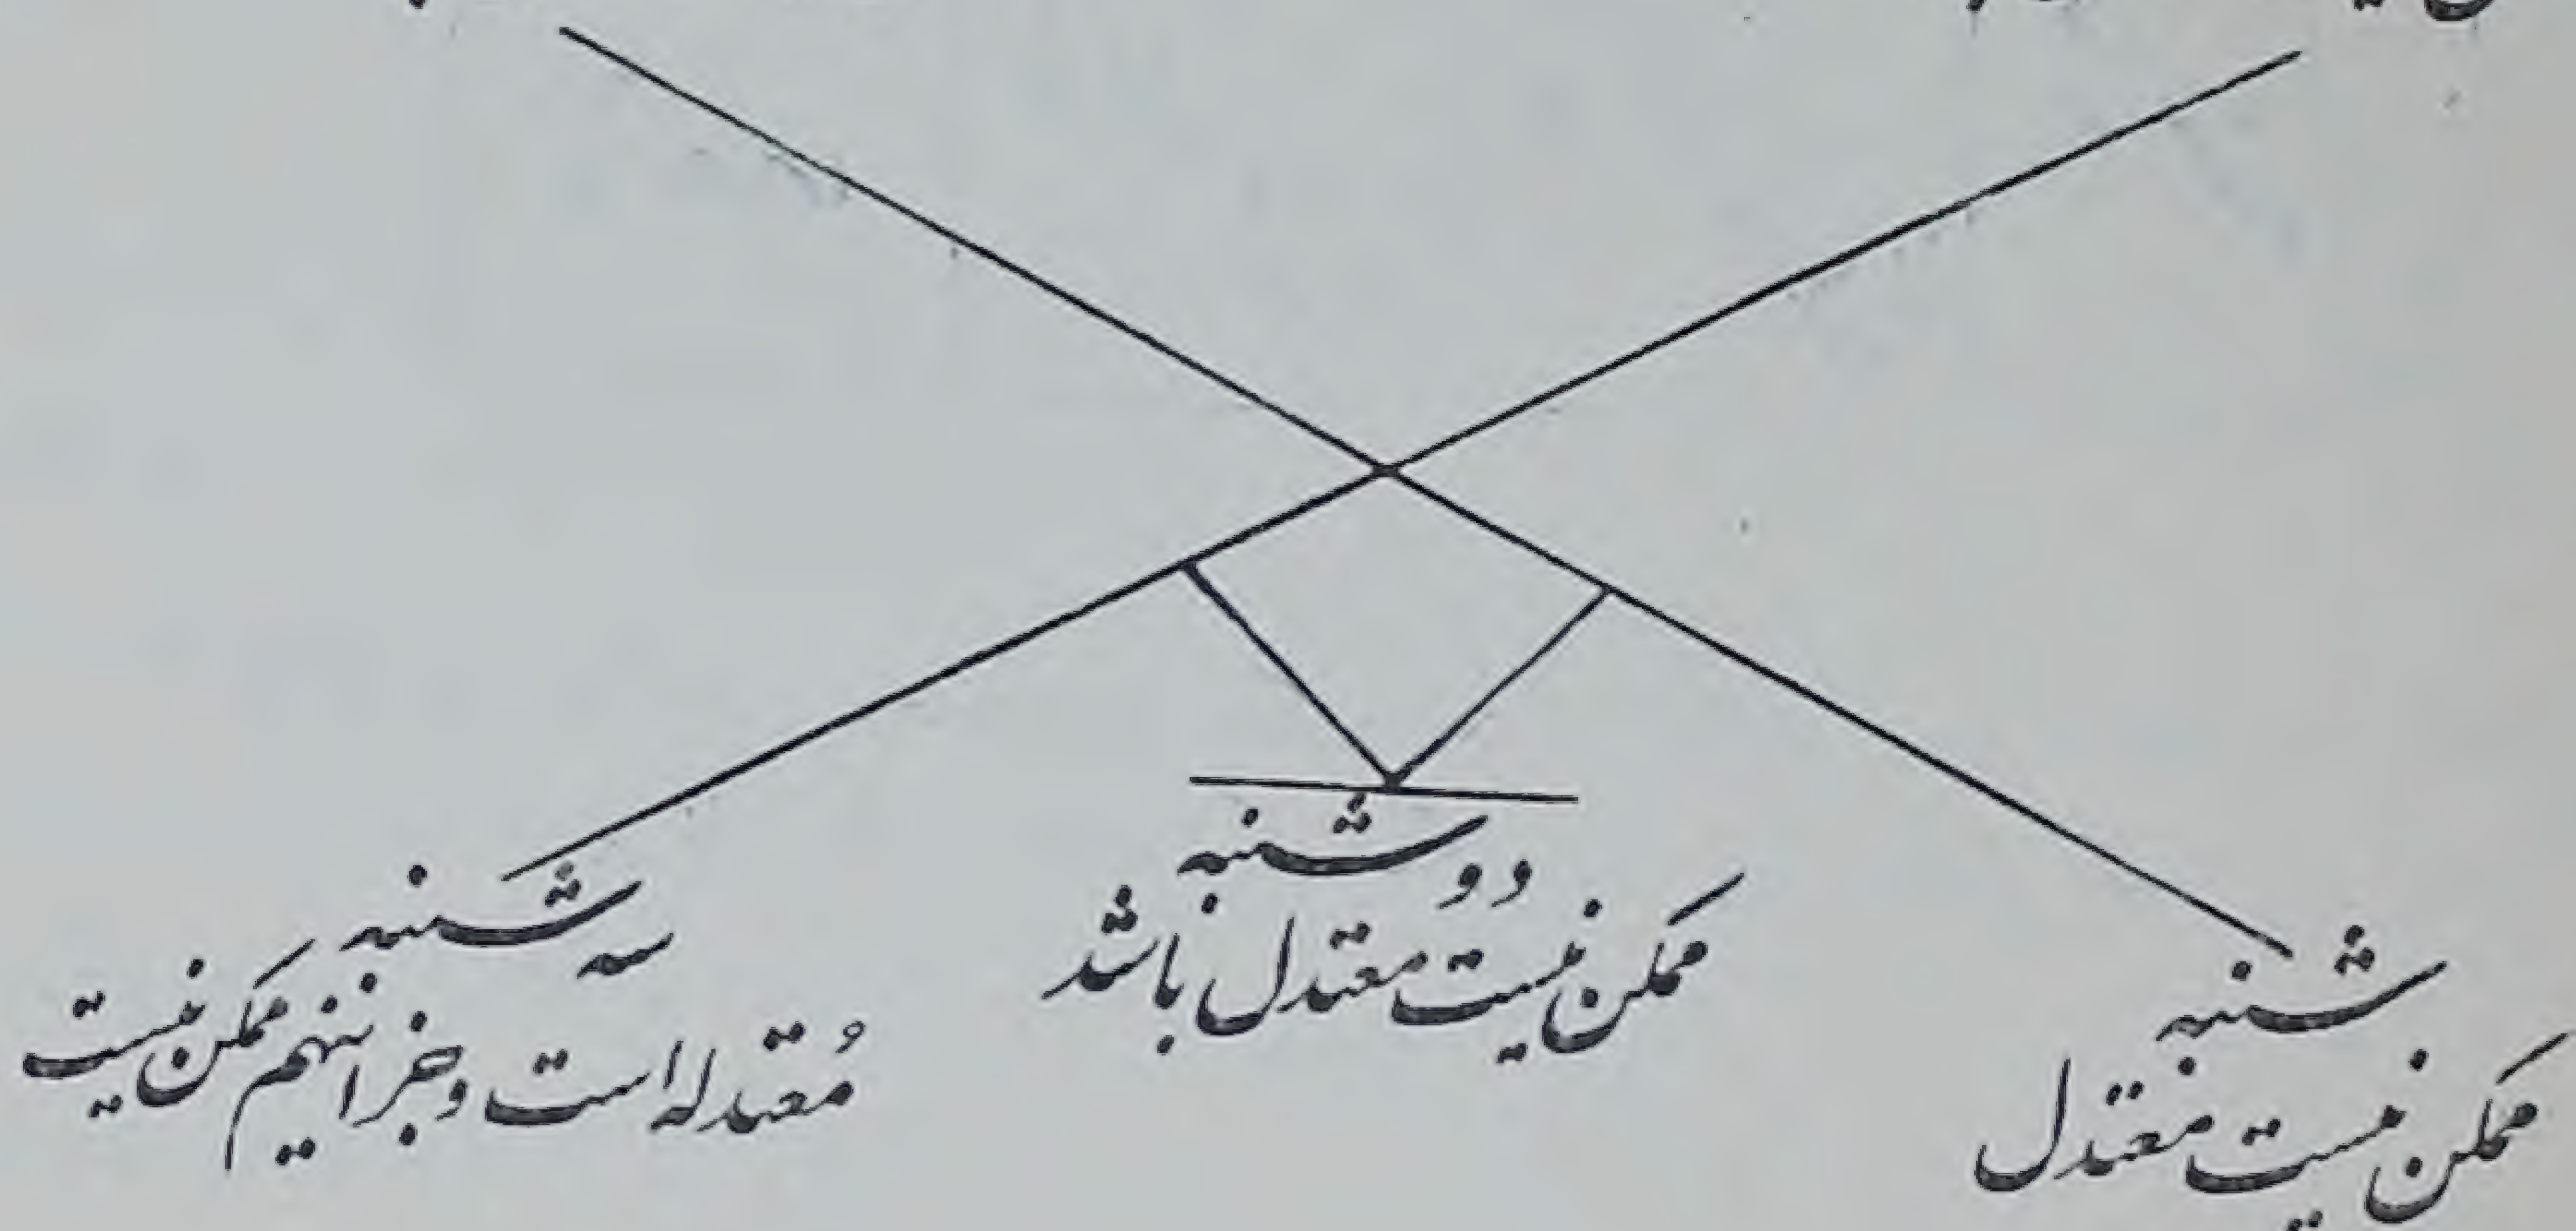 شنبه
ممکن نیست معتدل
دوشنبه
ممکن نیست معتدل باشد
سه شنبه
مُعتدله است و جز اینهم ممکن نیست